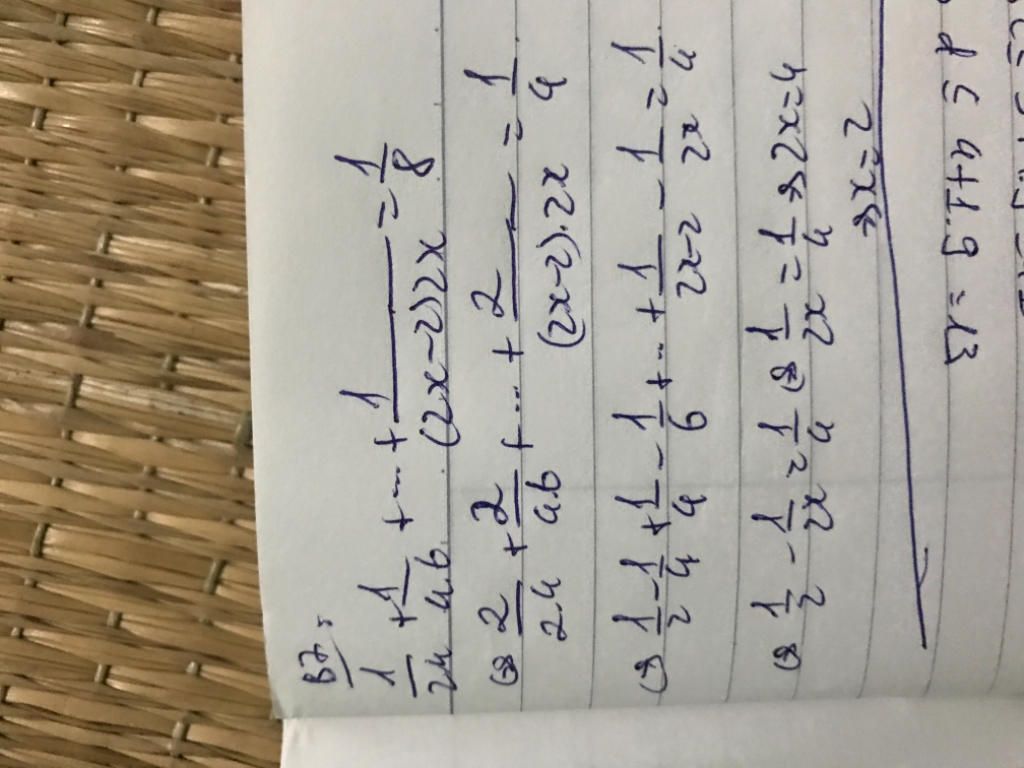 B7:
1/2.4 + 1/4.6 + ... + 1/(2x-2)2x = 1/8
⇔ 2/2.4 + 2/4.6 + ... + 2/(2x-2).2x = 1/4
⇔ 1/2 - 1/4 + 1/4 - 1/6 + ... + 1/2x-2 - 1/2x = 1/4
⇔ 1/2 - 1/2x = 1/4 ⇔ 1/2x = 1/4 ⇒ 2x=4
⇒ x=2